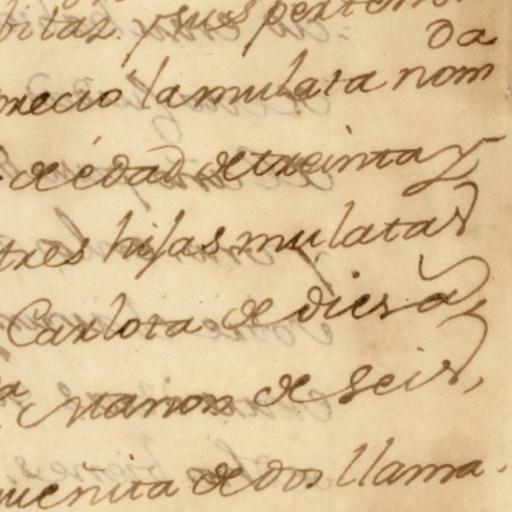 bitar. y sus perten
precio la mulata nom da
de édad de treinta y
tres hijas mulatas
Carlota de dies a
de seis,
queñita de dos llama